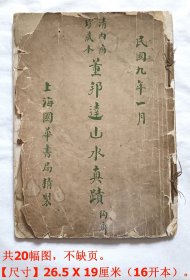 民國九年一月
清內府
珍藏本
董邦達山水真蹟
內府
上海國華書局精製
共20幅图，不缺页。
【尺寸】26.5 X 19厘米（16开本）。